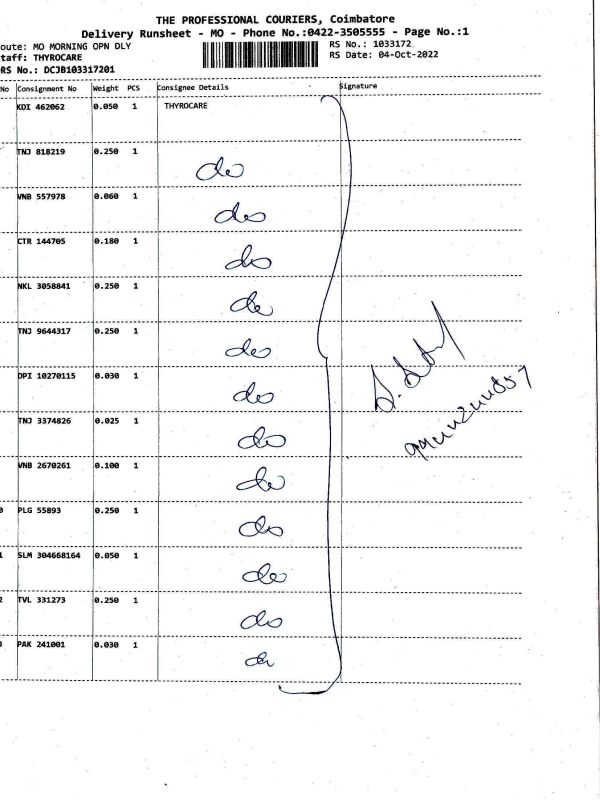 THE PROFESSIONAL COURIERS, Coimbatore
Delivery Runsheet - MO - Phone No.:0422-3505555 - Page No.:1
oute: MO MORNING OPN DLY
RS No.: 1033172
taff: THYROCARE
RS Date: 04-Oct-2022
RS No.: DCJB103317201
No Consignment No Weight PCS Consignee Details Signature
KDI 462062 0.050 1 THYROCARE
TNJ 818219 0.250 1 do
VNB 557978 0.060 1 do
CTR 144705 0.180 1 do
NKL 3058841 0.250 1 do
TNJ 9644317 0.250 1 do
DPI 10270115 0.030 1 do
TNJ 3374826 0.025 1 do
VNB 2670261 0.100 1 do
0 PLG 55893 0.250 1 do
1 SLM 304668164 0.050 1 do
2 TVL 331273 0.250 1 do
3 PAK 241001 0.030 1 do